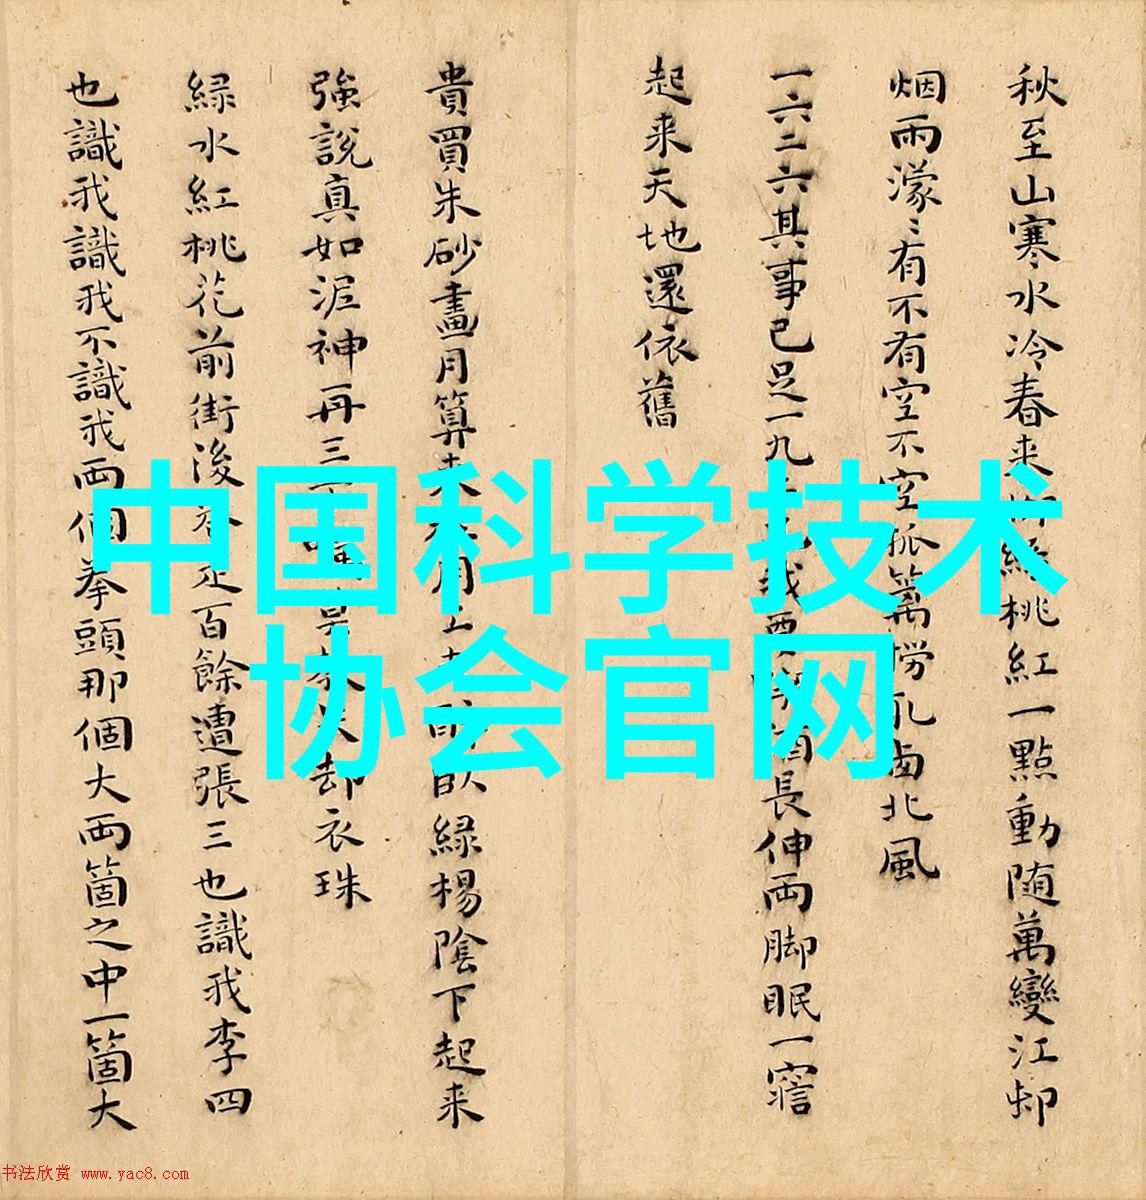 秋至山寒水冷春来桃紅一點動随萬變江邨
烟雨濛〻有不有空不空孤篱撈乱北風
一六三六其事已足一九我要長伸両脚眠一寤
起来天地還依舊
貴買朱砂畫月算来緑楊陰下起来
強說真如泥神再三却衣珠
緑水紅桃花前街後百餘遭張三也識我李四
也識我識我不識我両個拳頭那個大両箇之中一箇大
中国科学技术
协会官网
书法欣赏 www.yac8.com